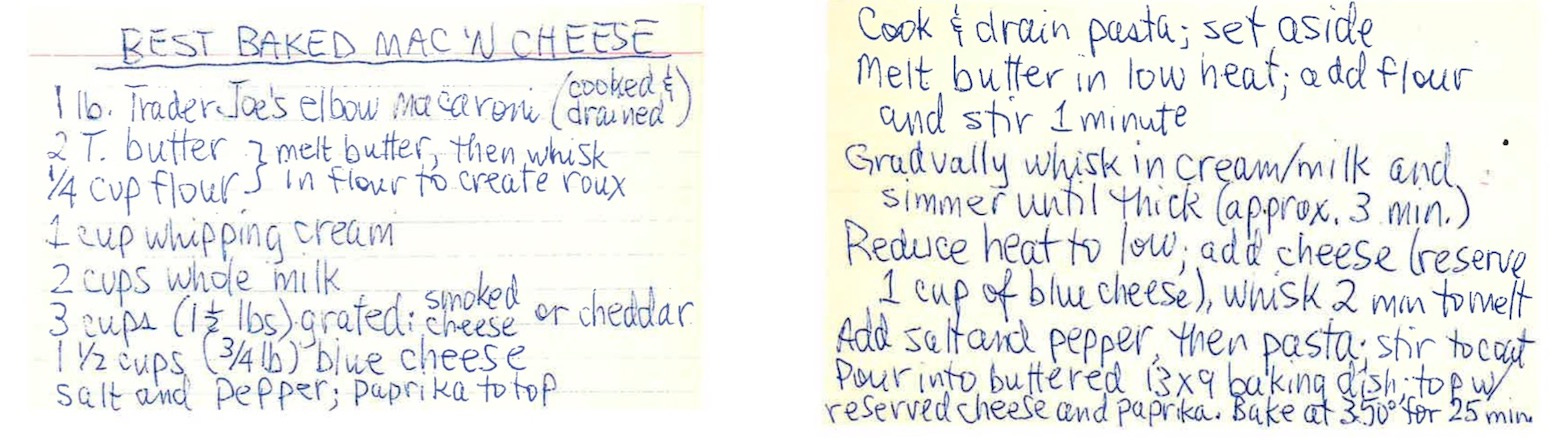 BEST BAKED MAC 'N CHEESE
1 lb. Trader Joe's elbow macaroni (cooked & drained)
2 T. butter } melt butter, then whisk
1/4 cup flour } in flour to create roux
1 cup whipping cream
2 cups whole milk
3 cups (1 1/2 lbs) grated: smoked cheese or cheddar
1 1/2 cups (3/4 lb) blue cheese
salt and pepper; paprika to top
Cook & drain pasta; set aside
Melt butter in low heat; add flour
and stir 1 minute
Gradually whisk in cream/milk and
simmer until thick (approx. 3 min.)
Reduce heat to low; add cheese (reserve
1 cup of blue cheese), whisk 2 min to melt
Add salt and pepper, then pasta; stir to coat
Pour into buttered 13x9 baking dish; top w/
reserved cheese and paprika. Bake at 350° for 25 min.